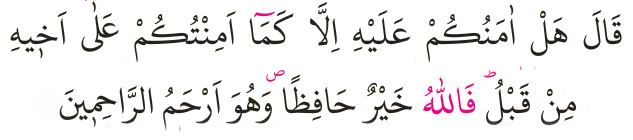 قَالَ هَلْ اٰمَنُكُمْ عَلَيْهِ اِلَّا كَمَٓا اَمِنْتُكُمْ عَلٰٓى اَخ۪يهِ
مِنْ قَبْلُۜ فَاللّٰهُ خَيْرٌ حَافِظًاۖ وَهُوَ اَرْحَمُ الرَّاحِم۪ينَ